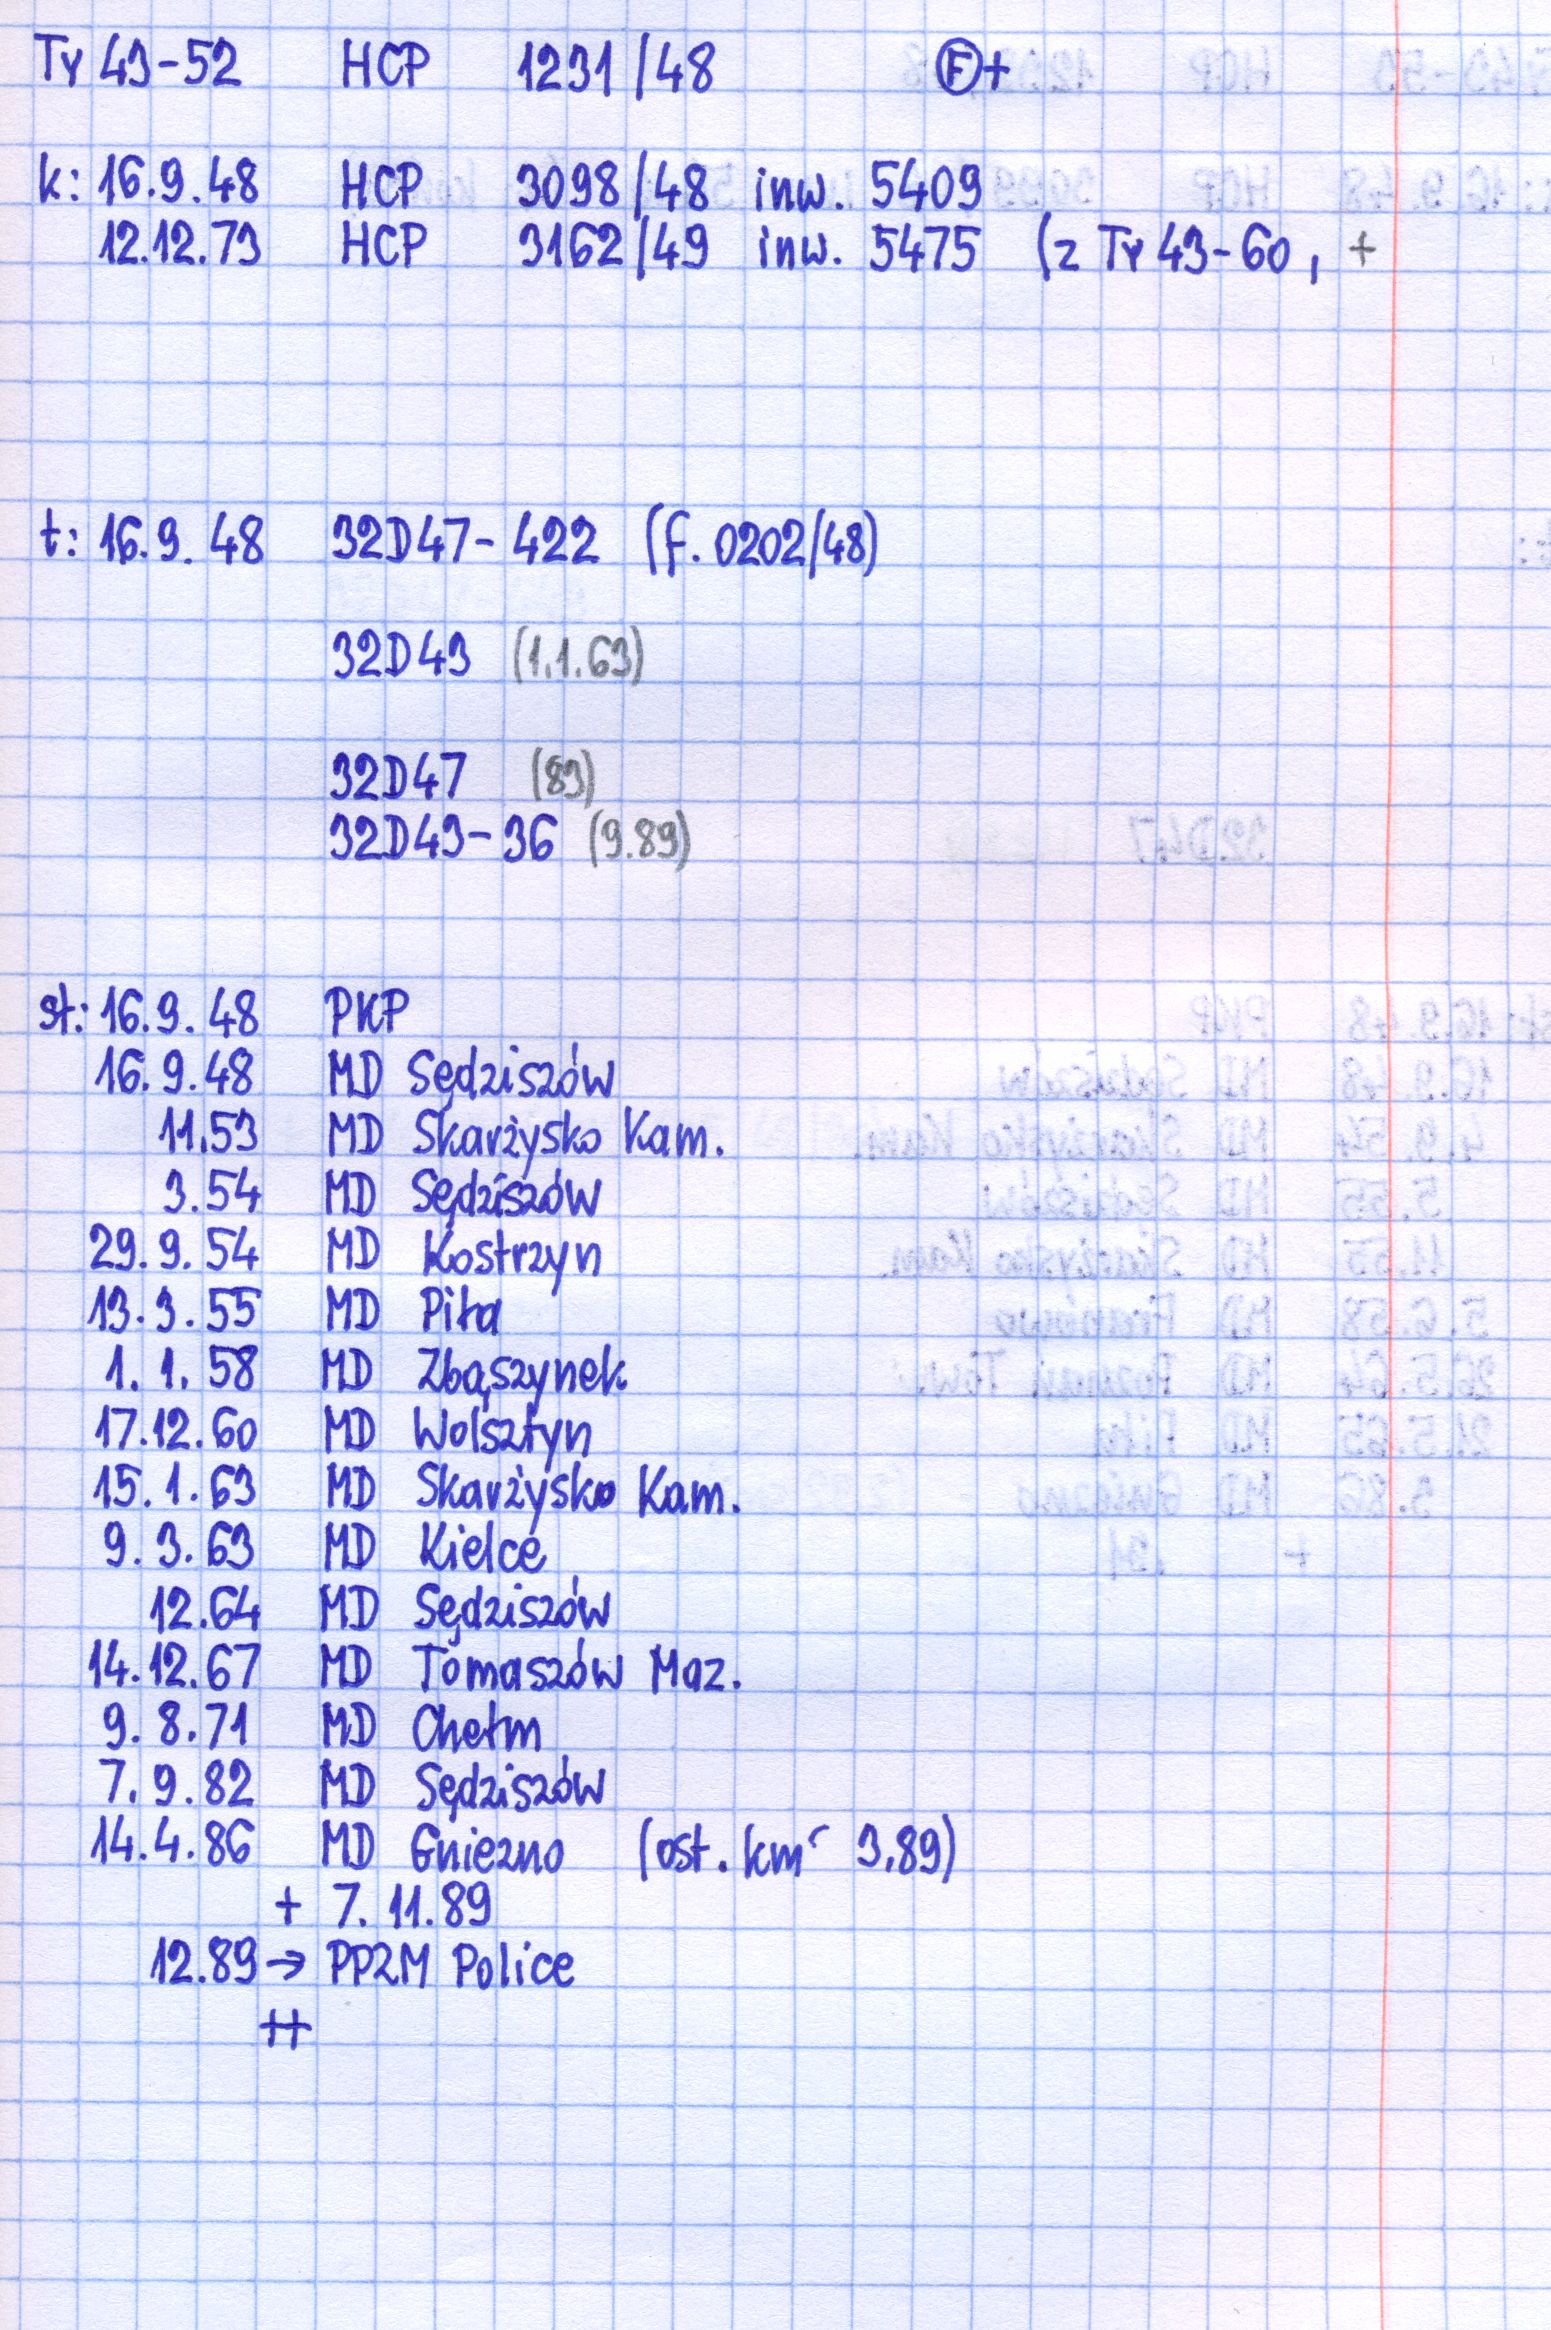 Ty 43-52 HCP 1231/48 Ⓕ+
k: 16.9.48 HCP 3098/48 inw. 5409
12.12.73 HCP 3162/49 inw. 5475 (z Ty 43-60, +
t: 16.9.48 32D47-422 (f. 0202/48)
32D43 (1.1.63)
32D47 (83)
32D43-36 (9.89)
st: 16.9.48 PKP
16.9.48 MD Sędziszów
11.53 MD Skarżysko Kam.
3.54 MD Sędziszów
29.9.54 MD Kostrzyn
13.3.55 MD Piła
1.1.58 MD Zbąszynek
17.12.60 MD Wolsztyn
15.1.63 MD Skarżysko Kam.
9.3.63 MD Kielce
12.64 MD Sędziszów
14.12.67 MD Tomaszów Maz.
9.8.71 MD Chełm
7.9.82 MD Sędziszów
14.4.86 MD Gniezno (ost. km 3.89)
+ 7.11.89
12.89 → PPZM Police
++